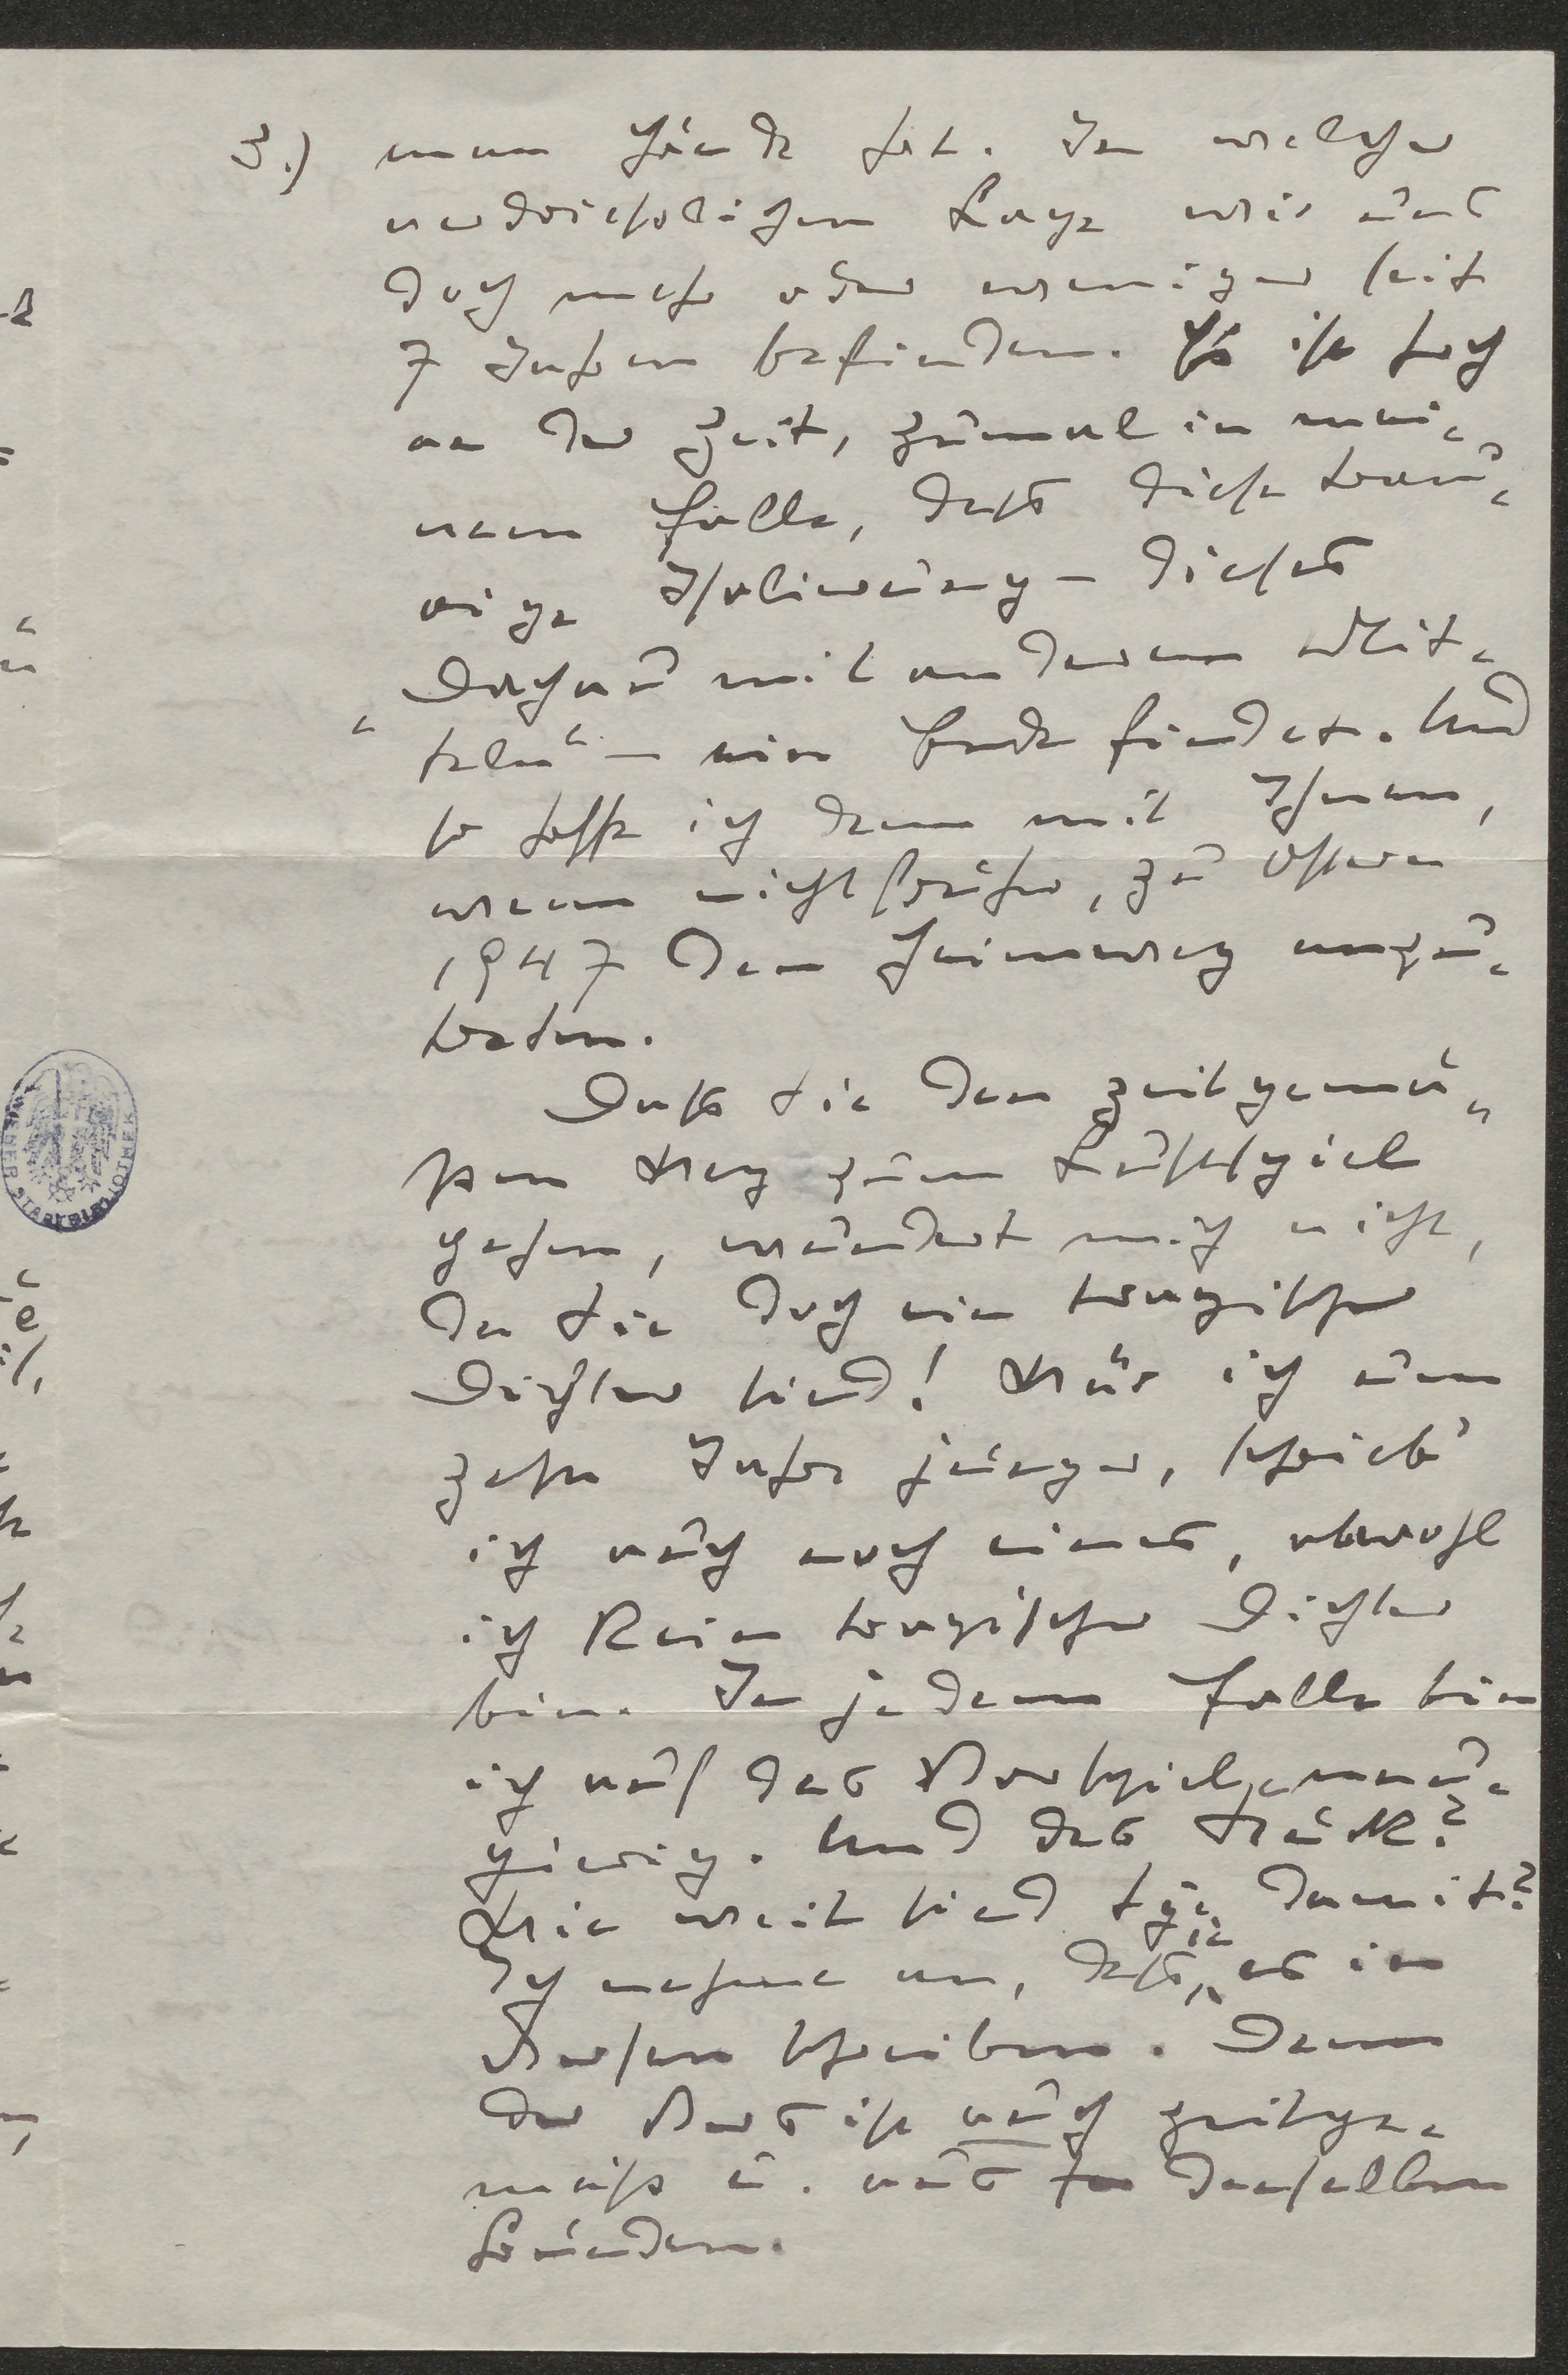 3.) man Hände hat. In welcher
verdrießlichen Lage wir uns
doch mehr oder weniger seit
7 Jahren befinden. Es ist hoch
an der Zeit, zumal in mei-
nem Falle, dass diese trau-
rige Isolierung - dieses
„Dachau mit anderen Mit-
teln“ - ein Ende findet. Und
so hoffe ich denn mit Ihnen,
wenn nicht früher, zu Ostern
1947 den Heimweg anzu-
treten.
Dass Sie den zeitgemä-
ßen Weg zum Lustspiel
gehen, wundert mich nicht,
da Sie doch ein tragischer
Dichter sind! Wär ich um
zehn Jahre jünger, schrieb
ich auch noch eines, obwohl
ich kein tragischer Dichter
bin. In jedem Falle bin
ich auf das Vorspiel neu-
gierig. Und das Stück?
Wie weit sind Sie damit?
Ich nehme an, dass Sie es in
Versen schreiben. Denn
der Vers ist auch zeitge-
mäß u. aus denselben
Gründen.
WIENER STADTBIBLIOTHEK